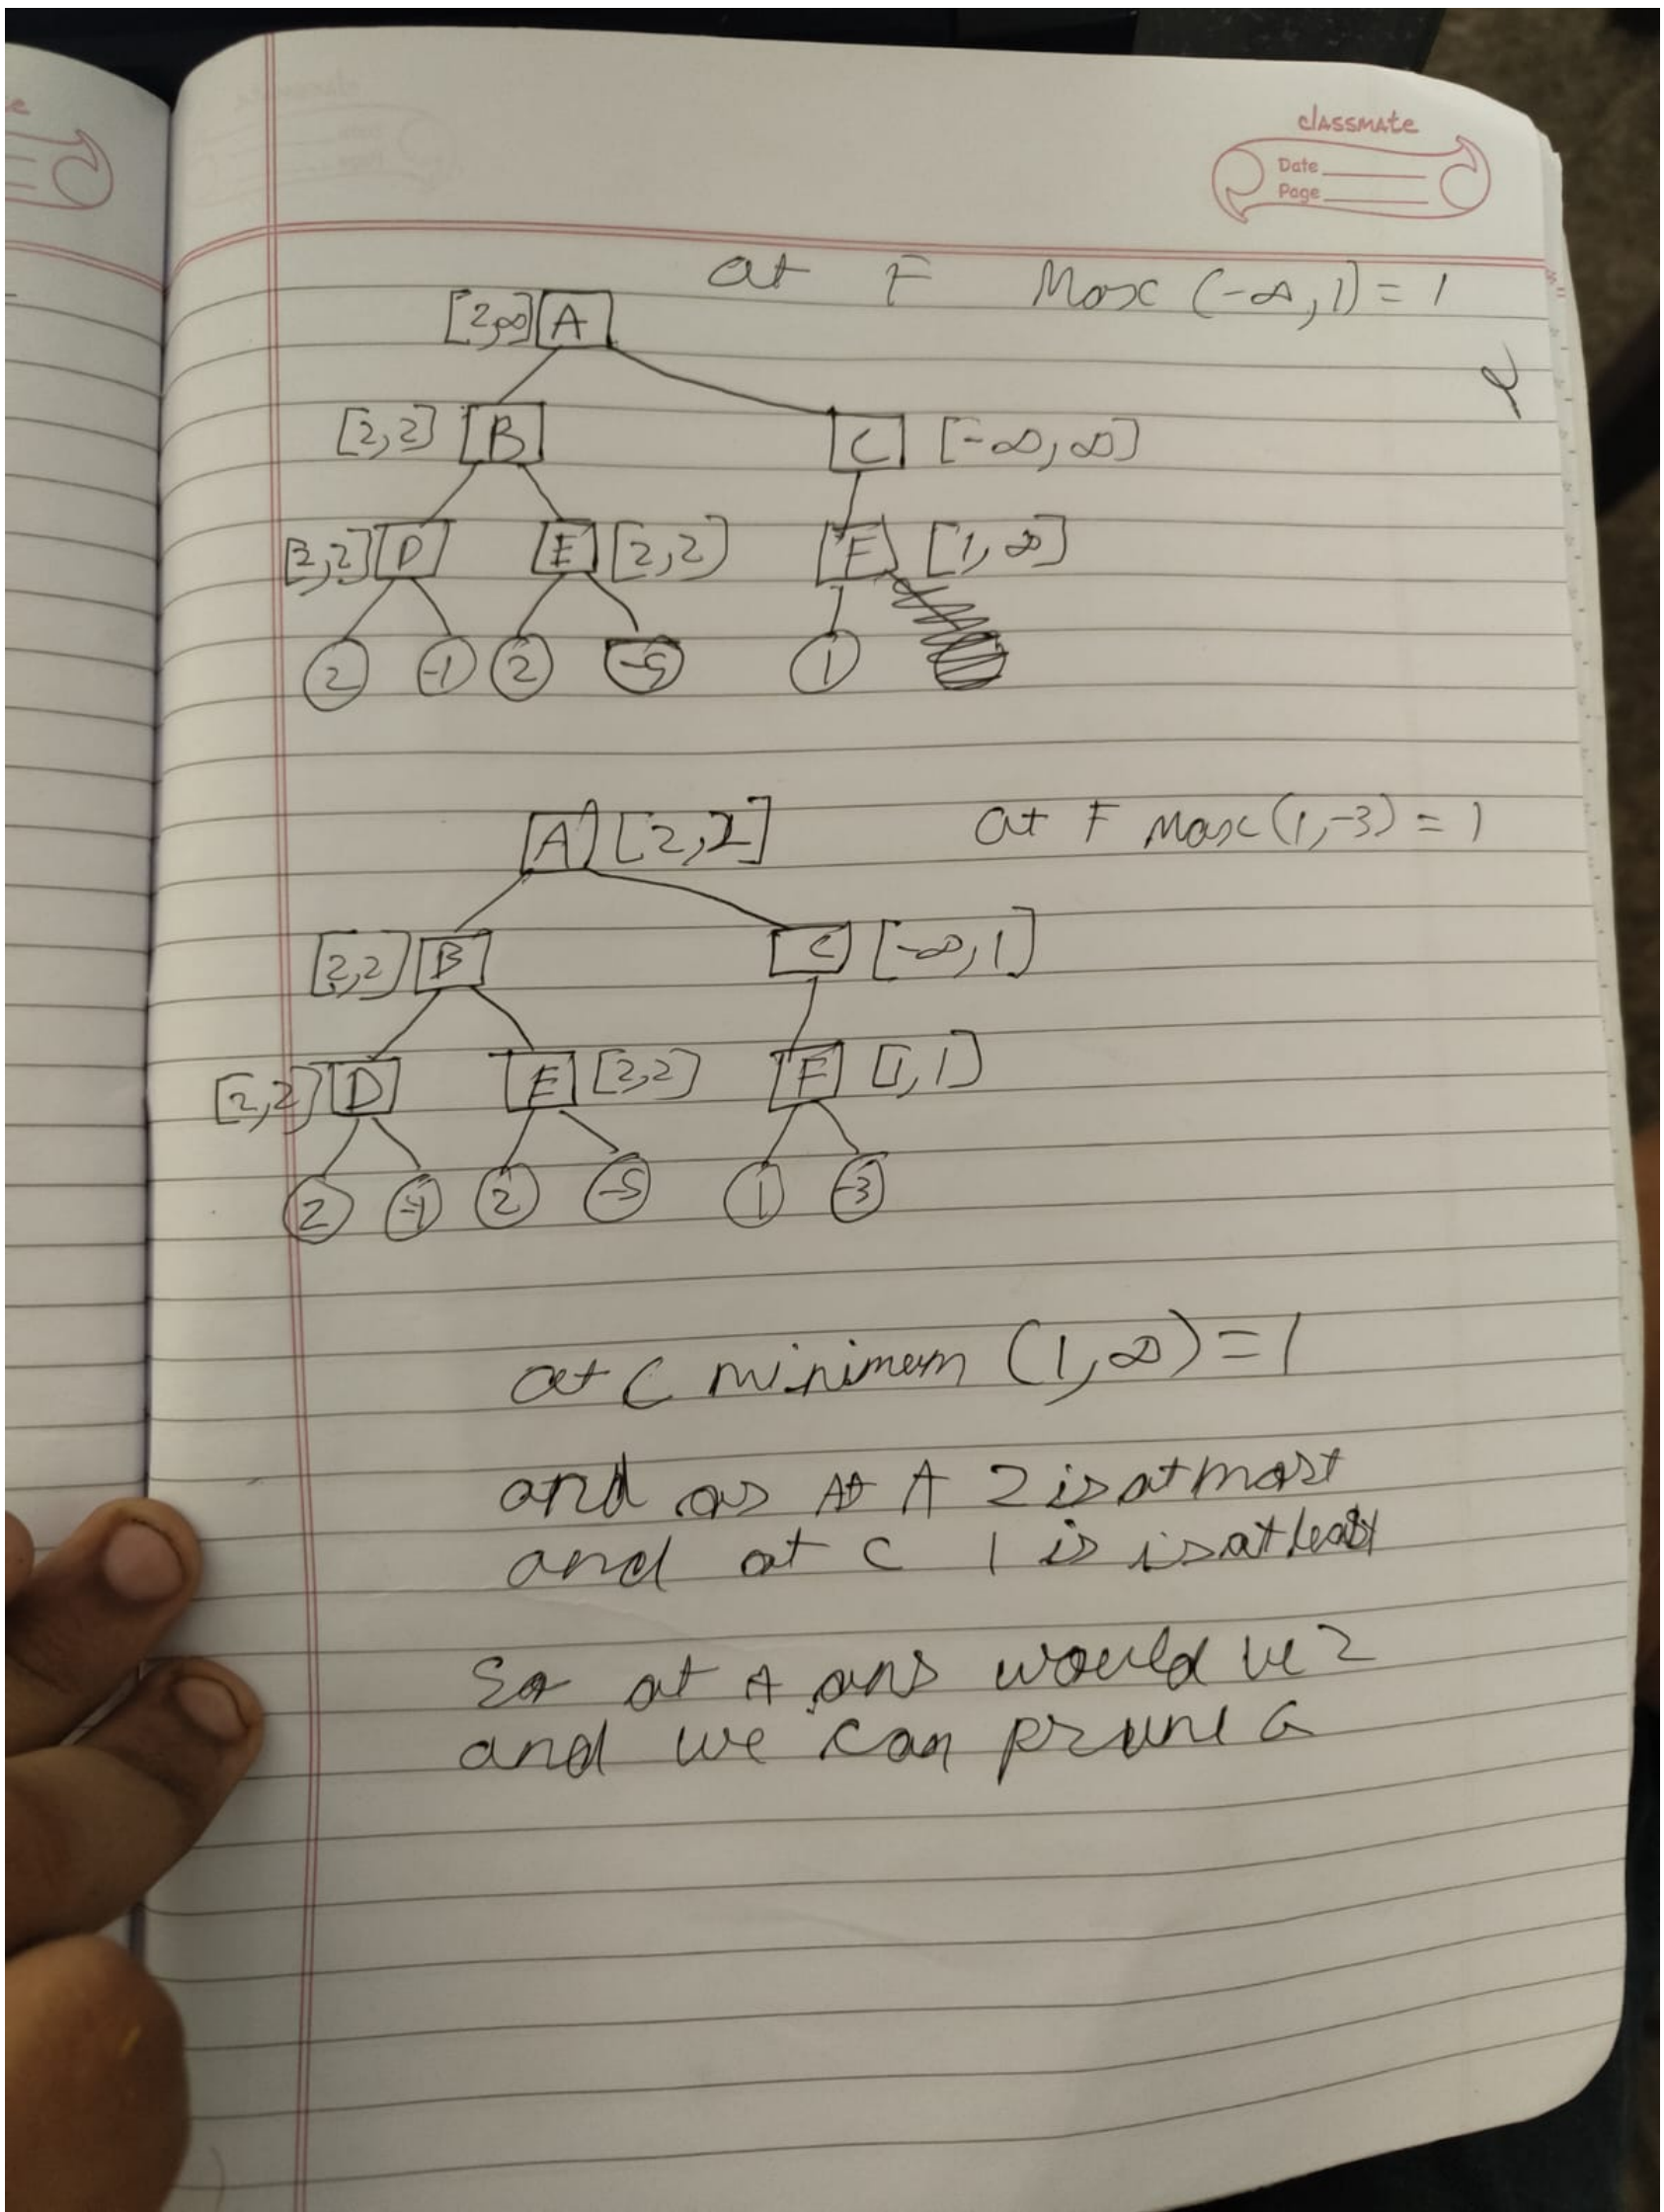 classmate
Date
Page
at F Max (-∞, 1) = 1
[2,∞] A
[2,2] B
C [-∞, ∞]
[2,2] D
E [2,2]
F [1, ∞]
2 -1 2 -5 1
A [2,2]
at F Max (1,-3) = 1
[2,2] B
C [-∞, 1]
[2,2] D
E [2,2]
F [1,1]
2 -1 2 -5 1 -3
at C minimum (1, ∞) = 1
and as At A 2 is at most
and at C 1 is is at least
So at A ans would be 2
and we can prune G